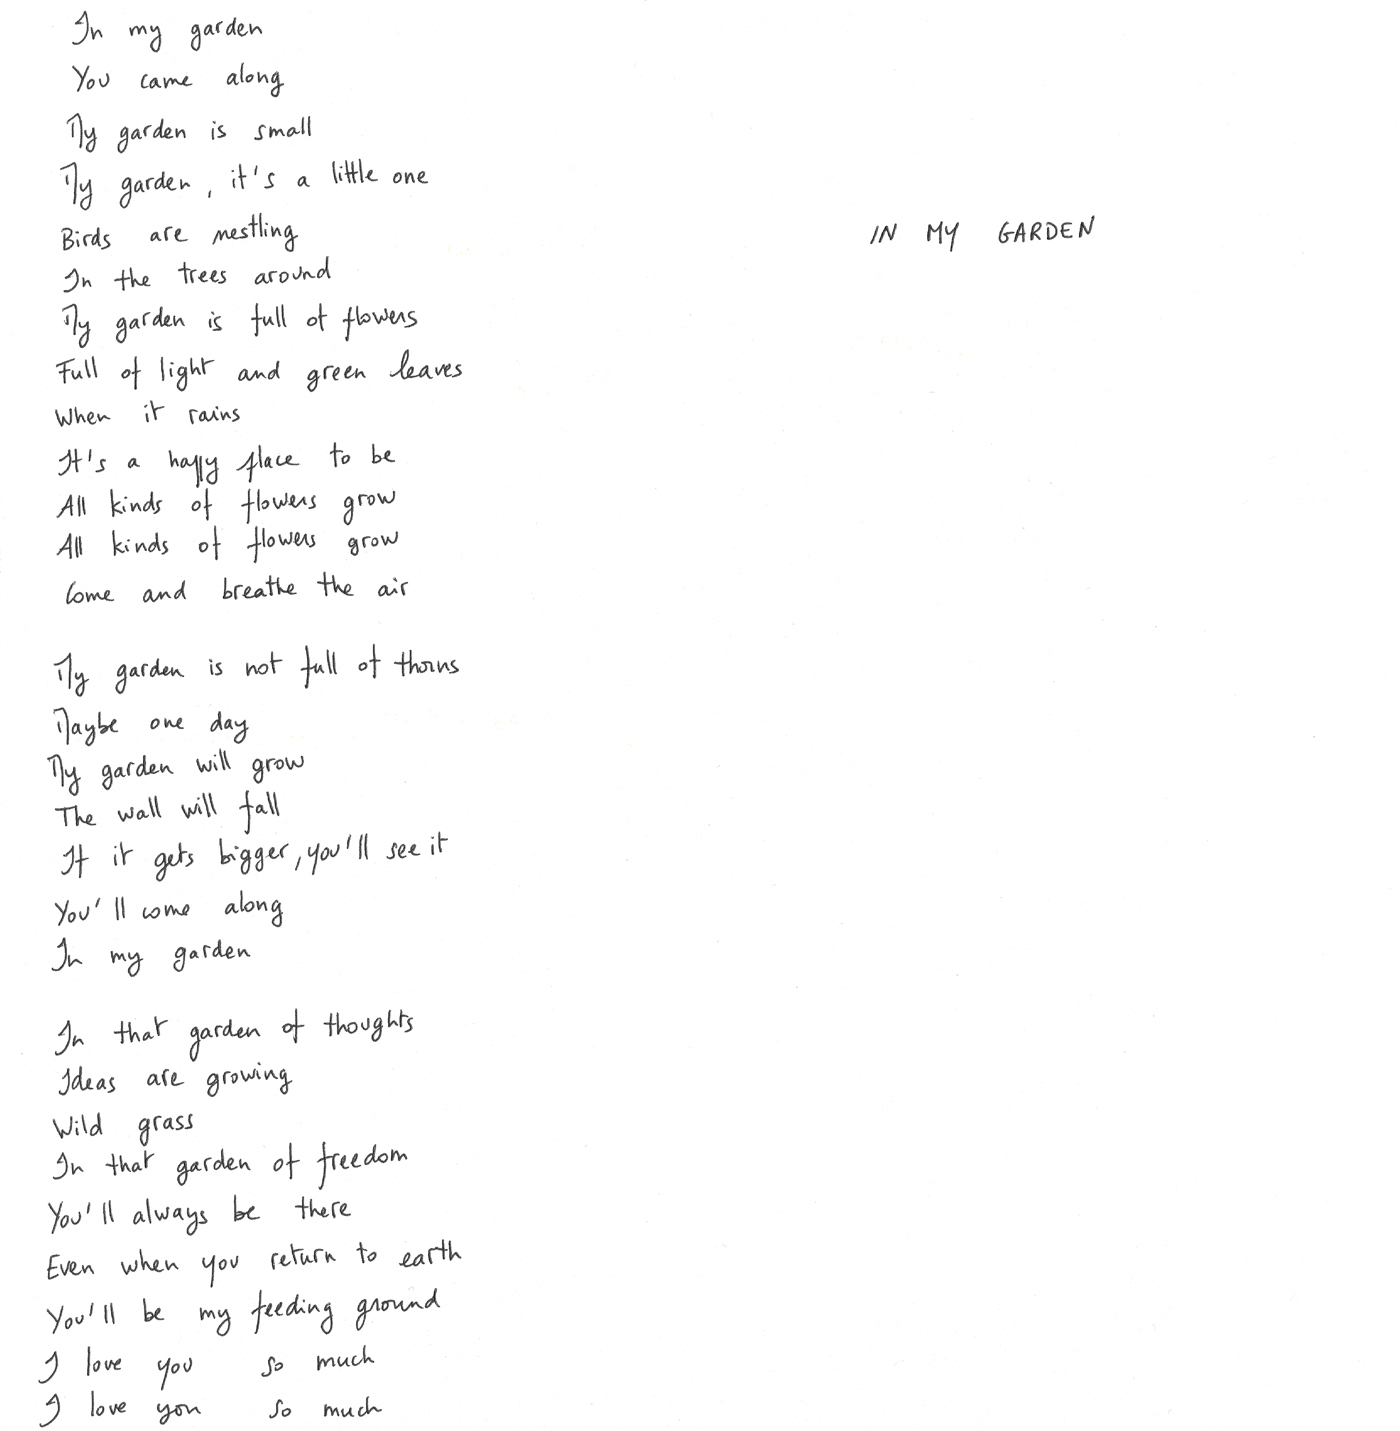 In my garden
You came along
My garden is small
My garden, it's a little one
Birds are nestling
IN MY GARDEN
In the trees around
My garden is full of flowers
Full of light and green leaves
When it rains
It's a happy place to be
All kinds of flowers grow
All kinds of flowers grow
Come and breathe the air
My garden is not full of thorns
Maybe one day
My garden will grow
The wall will fall
If it gets bigger, you'll see it
You'll come along
In my garden
In that garden of thoughts
Ideas are growing
Wild grass
In that garden of freedom
You'll always be there
Even when you return to earth
You'll be my feeding ground
I love you so much
I love you so much